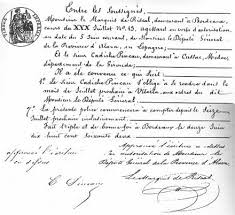 Entre les Soussignés,
Monsieur le Marquis de Riscal, demeurant à Bordeaux,
cours du XXX Juillet N° 13, agissant en vertu d'autorisation,
en date du 5 Juin courant, de Monsieur le Député Général
de la Province d'Alava, en Espagne;
Et le sieur Cadiche Pineau, demeurant à Cissac, Médoc,
département de la Gironde.
Il a été convenu ce qui suit:
1° Le sieur Cadiche Pineau s'oblige à se rendre dans le
mois de Juillet prochain à Vitoria, aux ordres du dit
Monsieur le Député Général.
2° La présente police commencera à compter depuis le Seize
Juillet prochain inclusivement.
Fait triple et de bonne foi à Bordeaux le douze Juin
mil huit cent soixante deux.
Approuvé l'écriture
ci-dessus
C. Pineau
Approuvé l'écriture
autorisation de Monsieur le
Député Général de la Province d'Alava
Le Marquis de Riscal